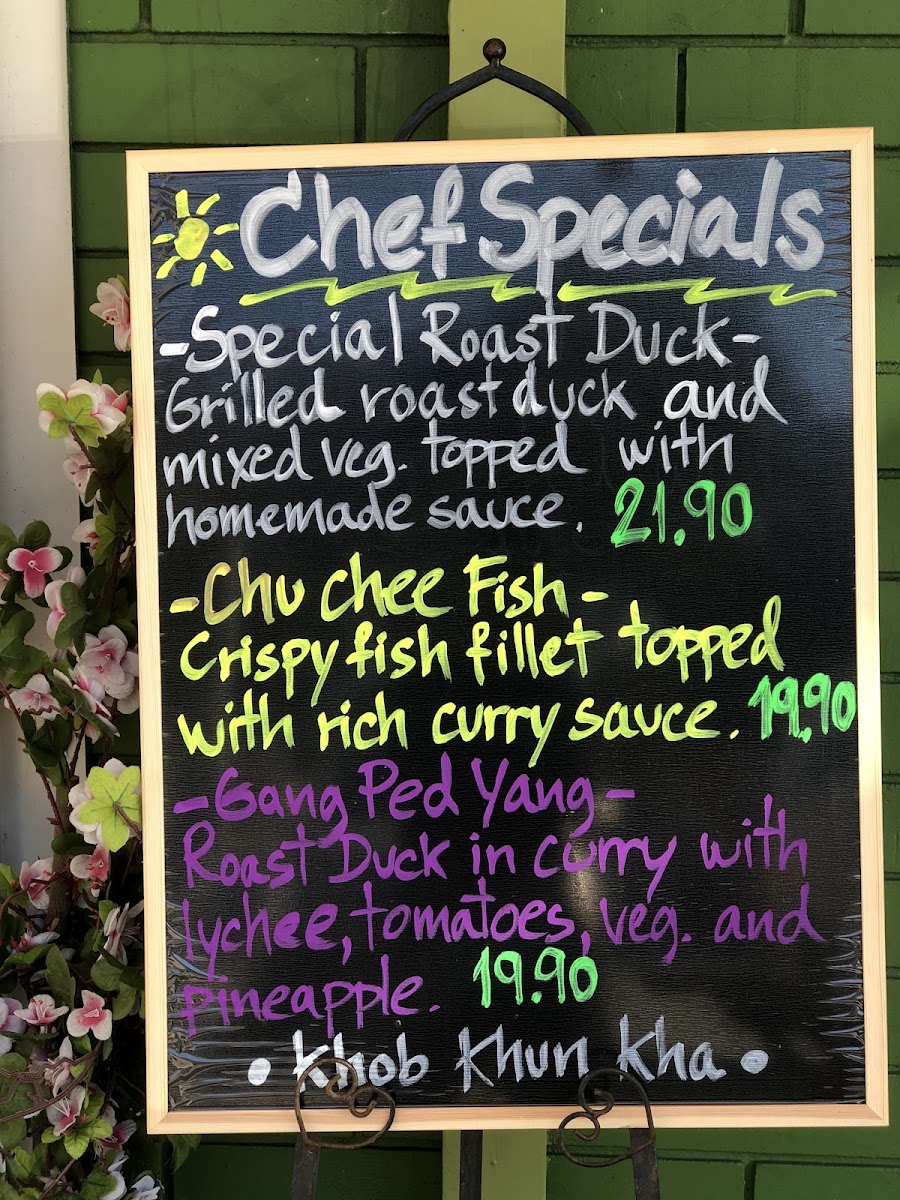 Chef Specials
-Special Roast Duck-
Grilled roast duck and
mixed veg. topped with
homemade sauce. 21.90
-Chu chee Fish-
Crispy fish fillet topped
with rich curry sauce. 19.90
-Gang Ped Yang-
Roast Duck in curry with
lychee, tomatoes, veg. and
pineapple. 19.90
• Khob Khun Kha •